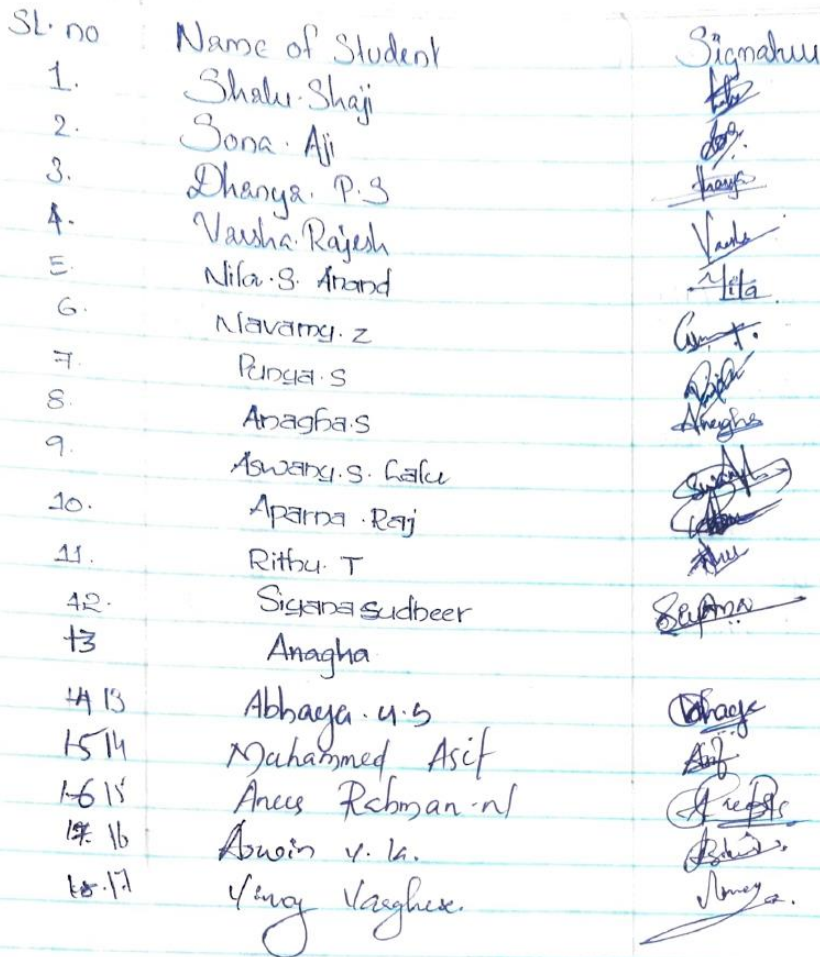 SL. no Name of Student Signature
1. Shalu. Shaji
2. Sona. Aji
3. Dhanya. P.S
4. Varsha. Rajesh Varsha
5. Nila. S. Anand Nila
6. Navamy. Z
7. Punya. S
8. Anagha. S Anagha
9. Aswany. S. Lalu
10. Aparna. Raj
11. Rithu. T
12. Siyana sudheer
13 Anagha
14 13 Abhaya. U. S Abhaya
15 14 Muhammed Asif Asif
16 15 Anees Rahman. N
17. 16 Aswin V. K.
18. 17 Vinoy Varghese.